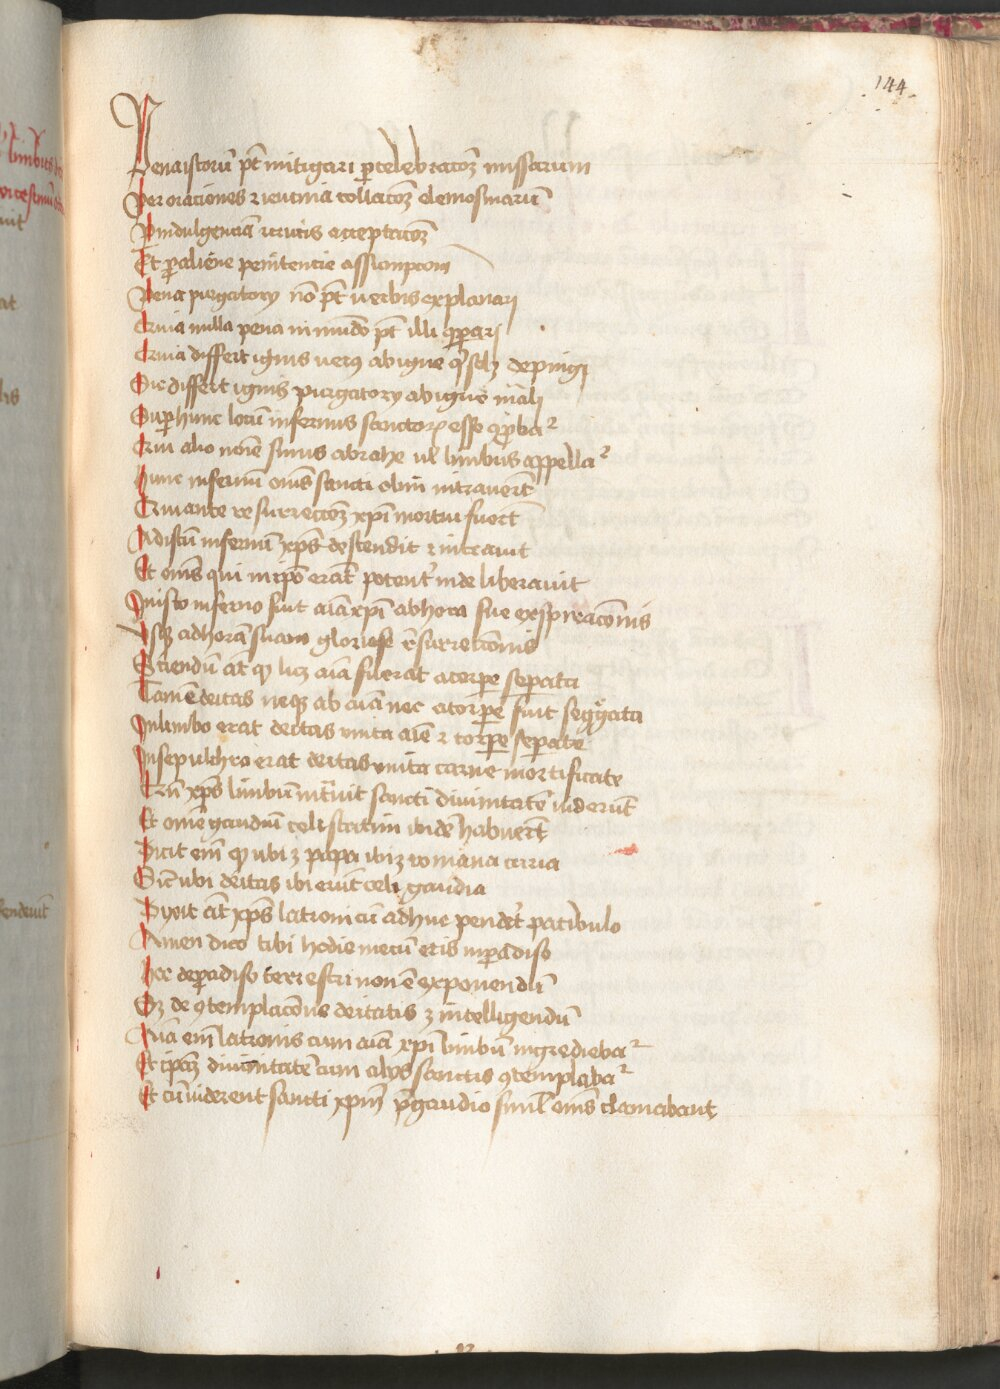 144
Pena istorū pt̄ mitigari p celebracoꝫ missarum
Per oraciones ⁊ ieiunia collacoꝫ elemosinarū
P indulgenciā ⁊ crucis acceptacoꝫ
Et p aliene penitencie assumpcom
Pena purgatory nō pt̄ uerbis explanari
Quia nulla pena in mūdo pt̄ illi ꝯpari
Quia differt ignis uerꝰ ab igne q solꝫ depingi
Sic differt ignis purgatory ab igne māli
Sup hunc locū infernus sanctoꝝ esse ꝓbaᷣ
Qui alio noīe sinus abrahe ul limbus appellaᷣ
Hunc infernū oms̄ sancti olim intrauerūt
Qui ante resurreccoꝫ xp̄i mortui fuerūt
Ad istū infernū xp̄s descendit ⁊ intrauit
Et oms̄ qui in ip̄o erāt potent̾ inde liberauit
In isto inferno fuit aīa xp̄i ab hora sue exspiracōnis
Usqꝫ ad horā suam gloriose resurreccōnis
Sciendū at̄ ꝙ licꝫ aīa fuerat a corpe separata
Tamē deitas neqꝫ ab aīa nec a corpe fuit segregata
In limbo erat deitas unita aīe ⁊ corpe sepate
In sepulchro erat deitas unita carne mortificate
Cū xp̄s limbum intuit sancti diuinitatē uiderūt
Et omē gaudiū celi statim ibidē habuerūt
Dicit em̄ ꝙ ubi ꝫ papa ibi ꝫ romana curia
Sic ubi deitas ibi erūt celi gaudia
Dixit at̄ xp̄s latroni cū adhuc pendet patibulo
Amen dico tibi hodie mecū eris in padiso
Hoc de padiso terrestri non ē exponendū
Sꝫ de ꝯtemplacōne deitatis ꝫ intelligendū
Aīa em̄ latronis cum aīa xp̄i limbū ingrediebaᷣ
Et ipaꝫ diuinitatē cum alys sanctis ꝯtemplabaᷣ
Et cū uiderent sancti xpm̄ p gaudio simul oms̄ clamabant